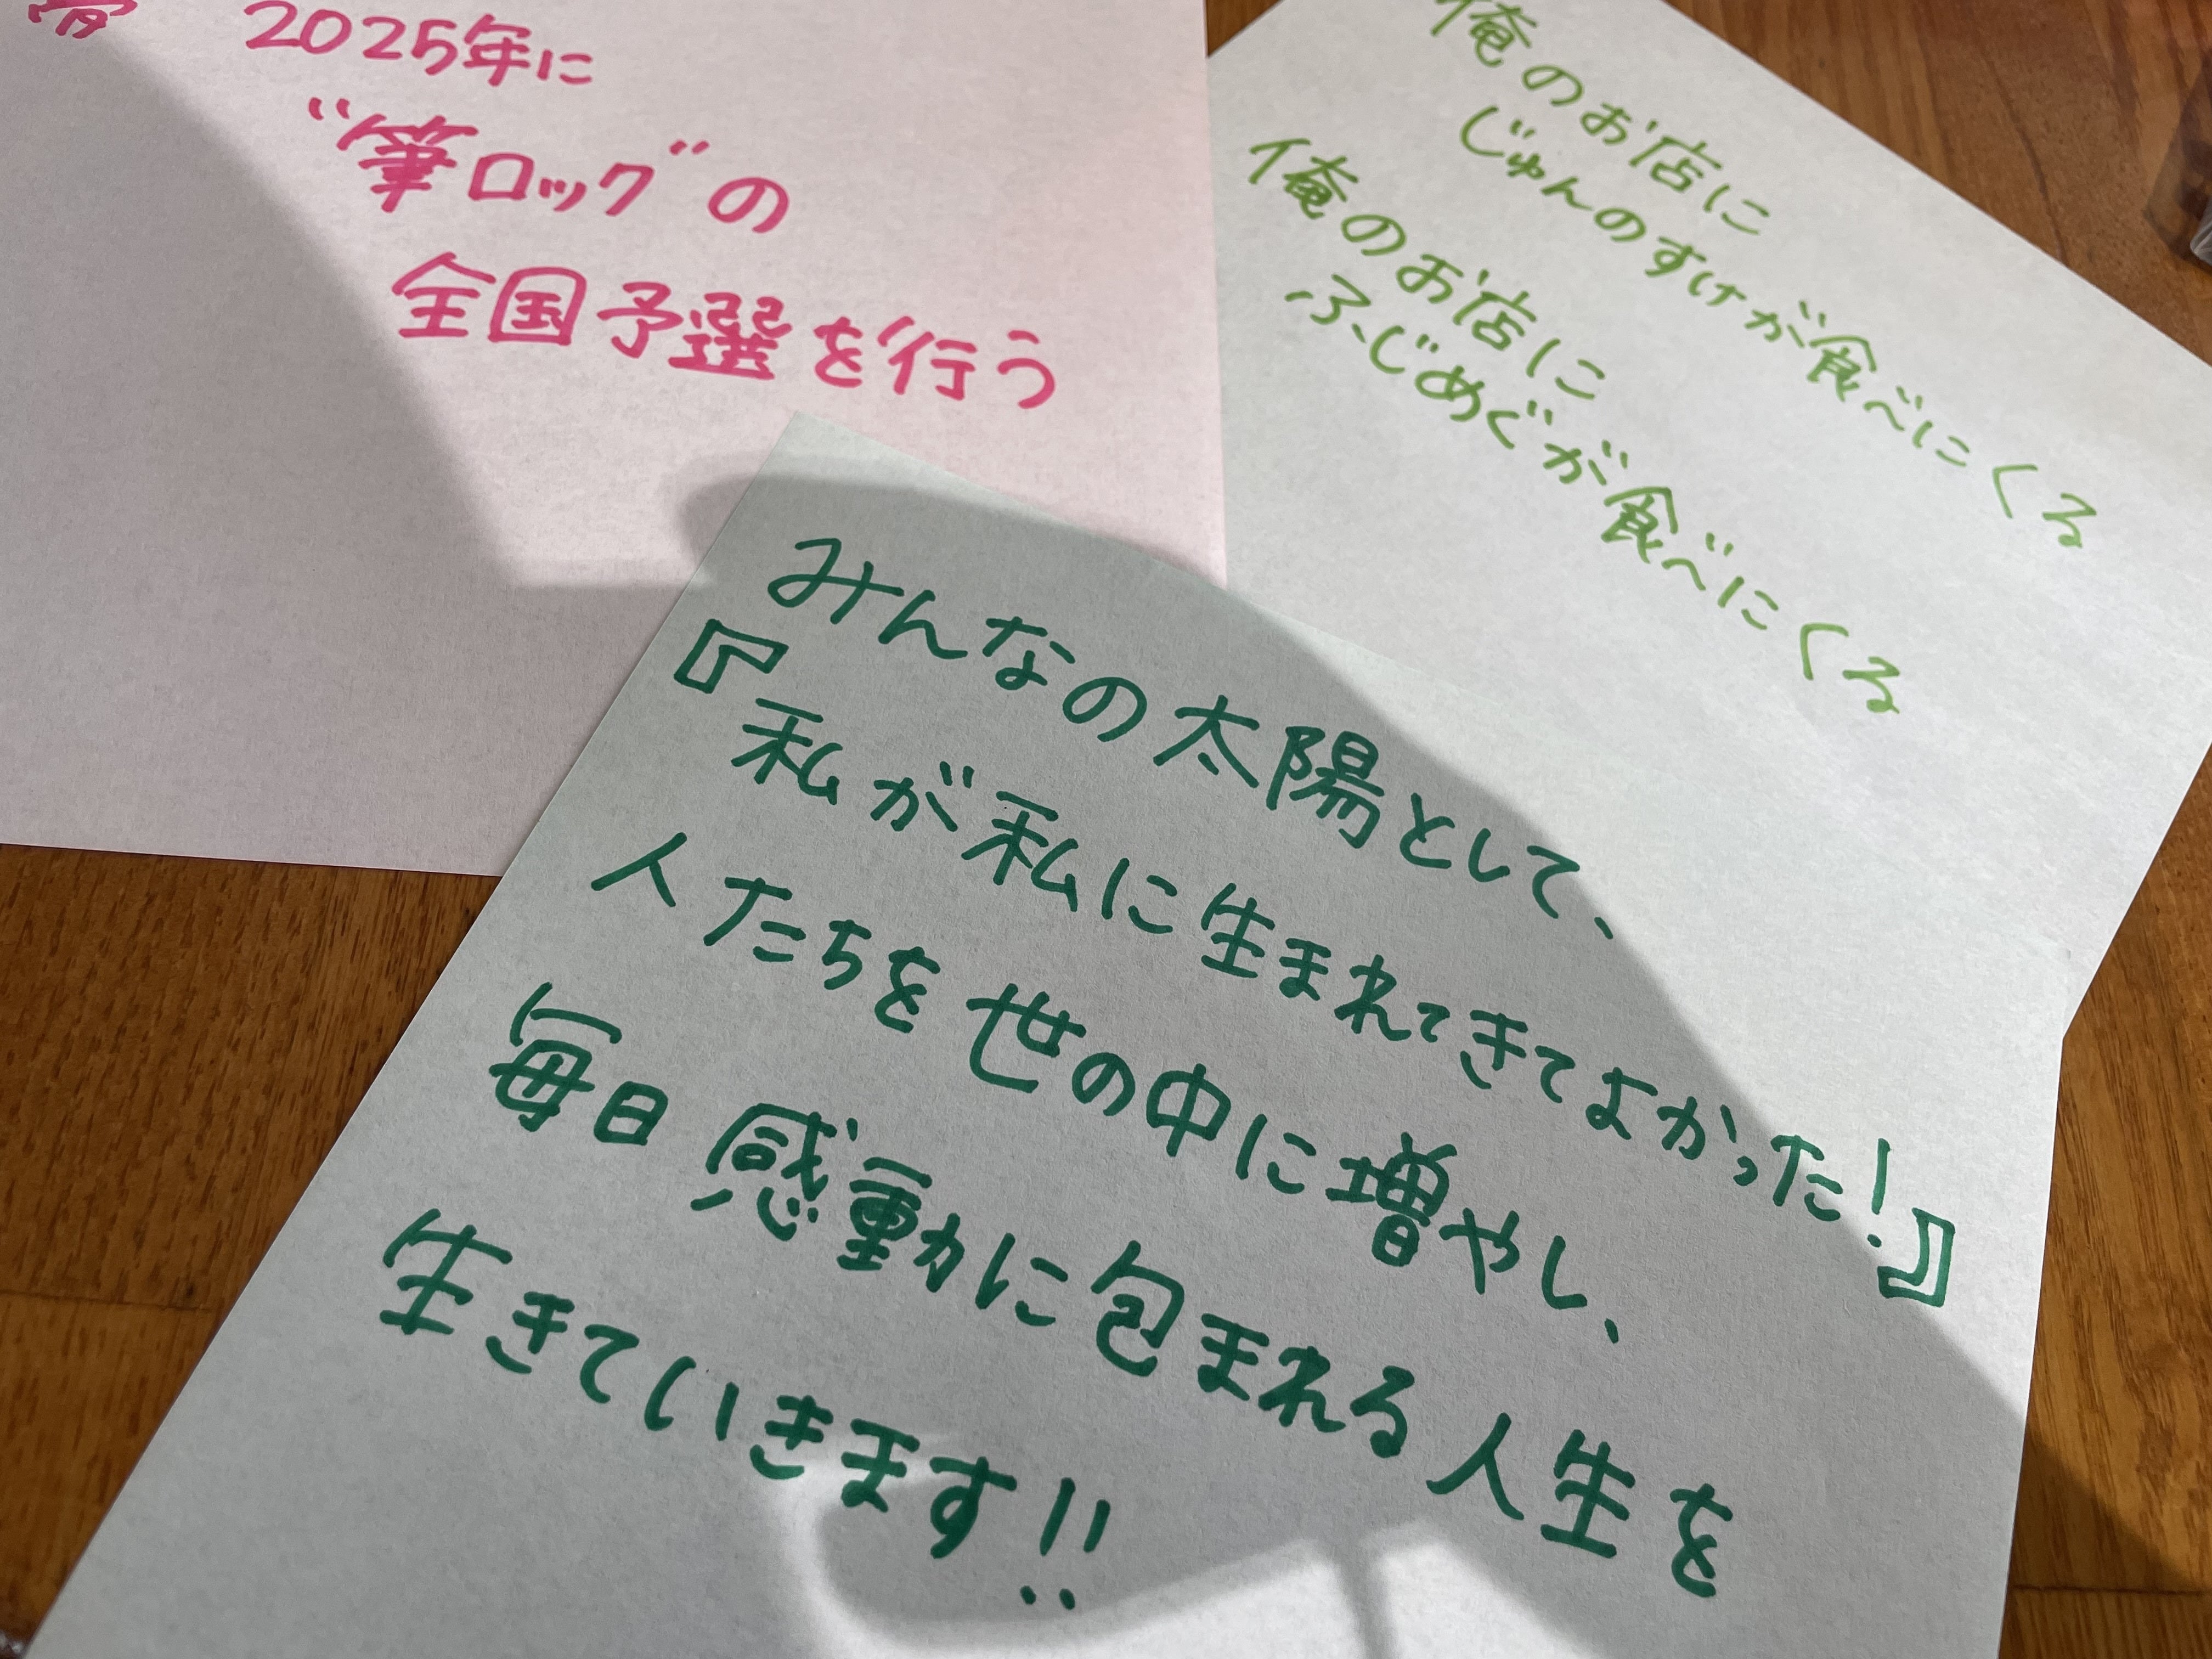 2025年に
"筆ロック"の
全国予選を行う
俺のお店に
じゅんのすけが食べにくる
俺のお店に
ふじめぐが食べにくる
みんなの太陽として、
『私が私に生まれてきてよかった!』
人たちを世の中に増やし、
毎日感動に包まれる人生を
生きていきます!!